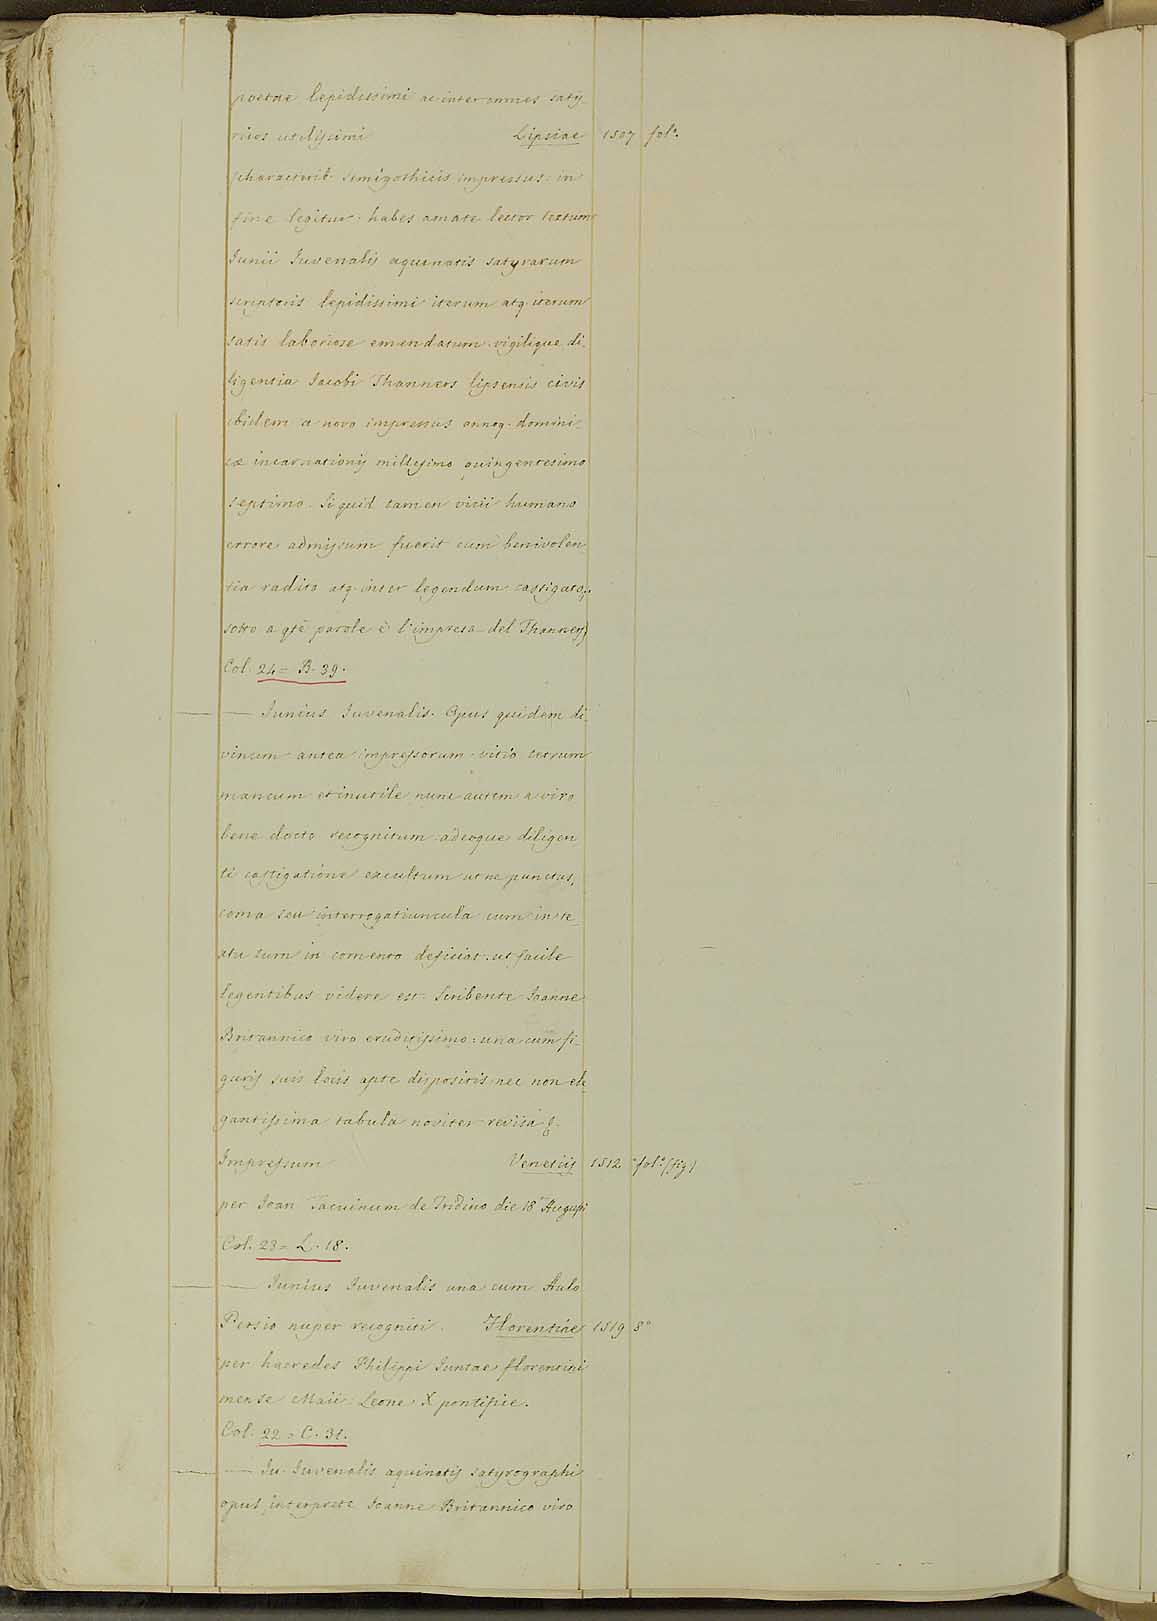 poetae lepidissimi ac inter omnes saty-
ricos utilissimi Lipsiae 1507 fol.°
(characterib. semigothicis impressus: in
fine legitur: habes amate lector textum
Junii Juvenalis aquinatis satyrarum
scriptoris lepidissimi iterum atq. iterum
satis laboriose emendatum vigilique di-
ligentia Jacobi Thanners lipsensis civis
ibidem a novo impressus annoq. domini-
cæ incarnationis millesimo quingentesimo
septimo. Si quid tamen vicii humano
errore admissum fuerit cum benivolen
tia radito atq. inter legendum castigato;
sotto a qte parole è l'impresa del Thanners)
Col. 24 = B. 39.
— Junius Juvenalis. Opus quidem di-
vinum antea impressorum vitio tetrum
mancum et inutile nunc autem a viro
bene docto recognitum adeoque diligen
ti castigatione excultum ut ne punctus,
coma seu interrogatiuncula cum in te-
xtu tum in comento deficiat: ut facile
legentibus videre est. Scribente Joanne
Britannico viro eruditissimo: una cum fi-
guris suis locis apte dispositis nec non ele
gantissima tabula noviter revisa &.
Impressum Venetiis 1512 fol.° (fig)
per Joan Tacuinum de Tridino die 18 Augusti
Col. 23 = L. 18.
— Junius Juvenalis una cum Aulo
Persio nuper recogniti. Florentiae 1519 8°
per haeredes Philippi Juntae florentini
mense Maii Leone X pontifice.
Col. 22 = C. 31.
— Ju. Juvenalis aquinatis satyrographi
opus interprete Joanne Britannico viro